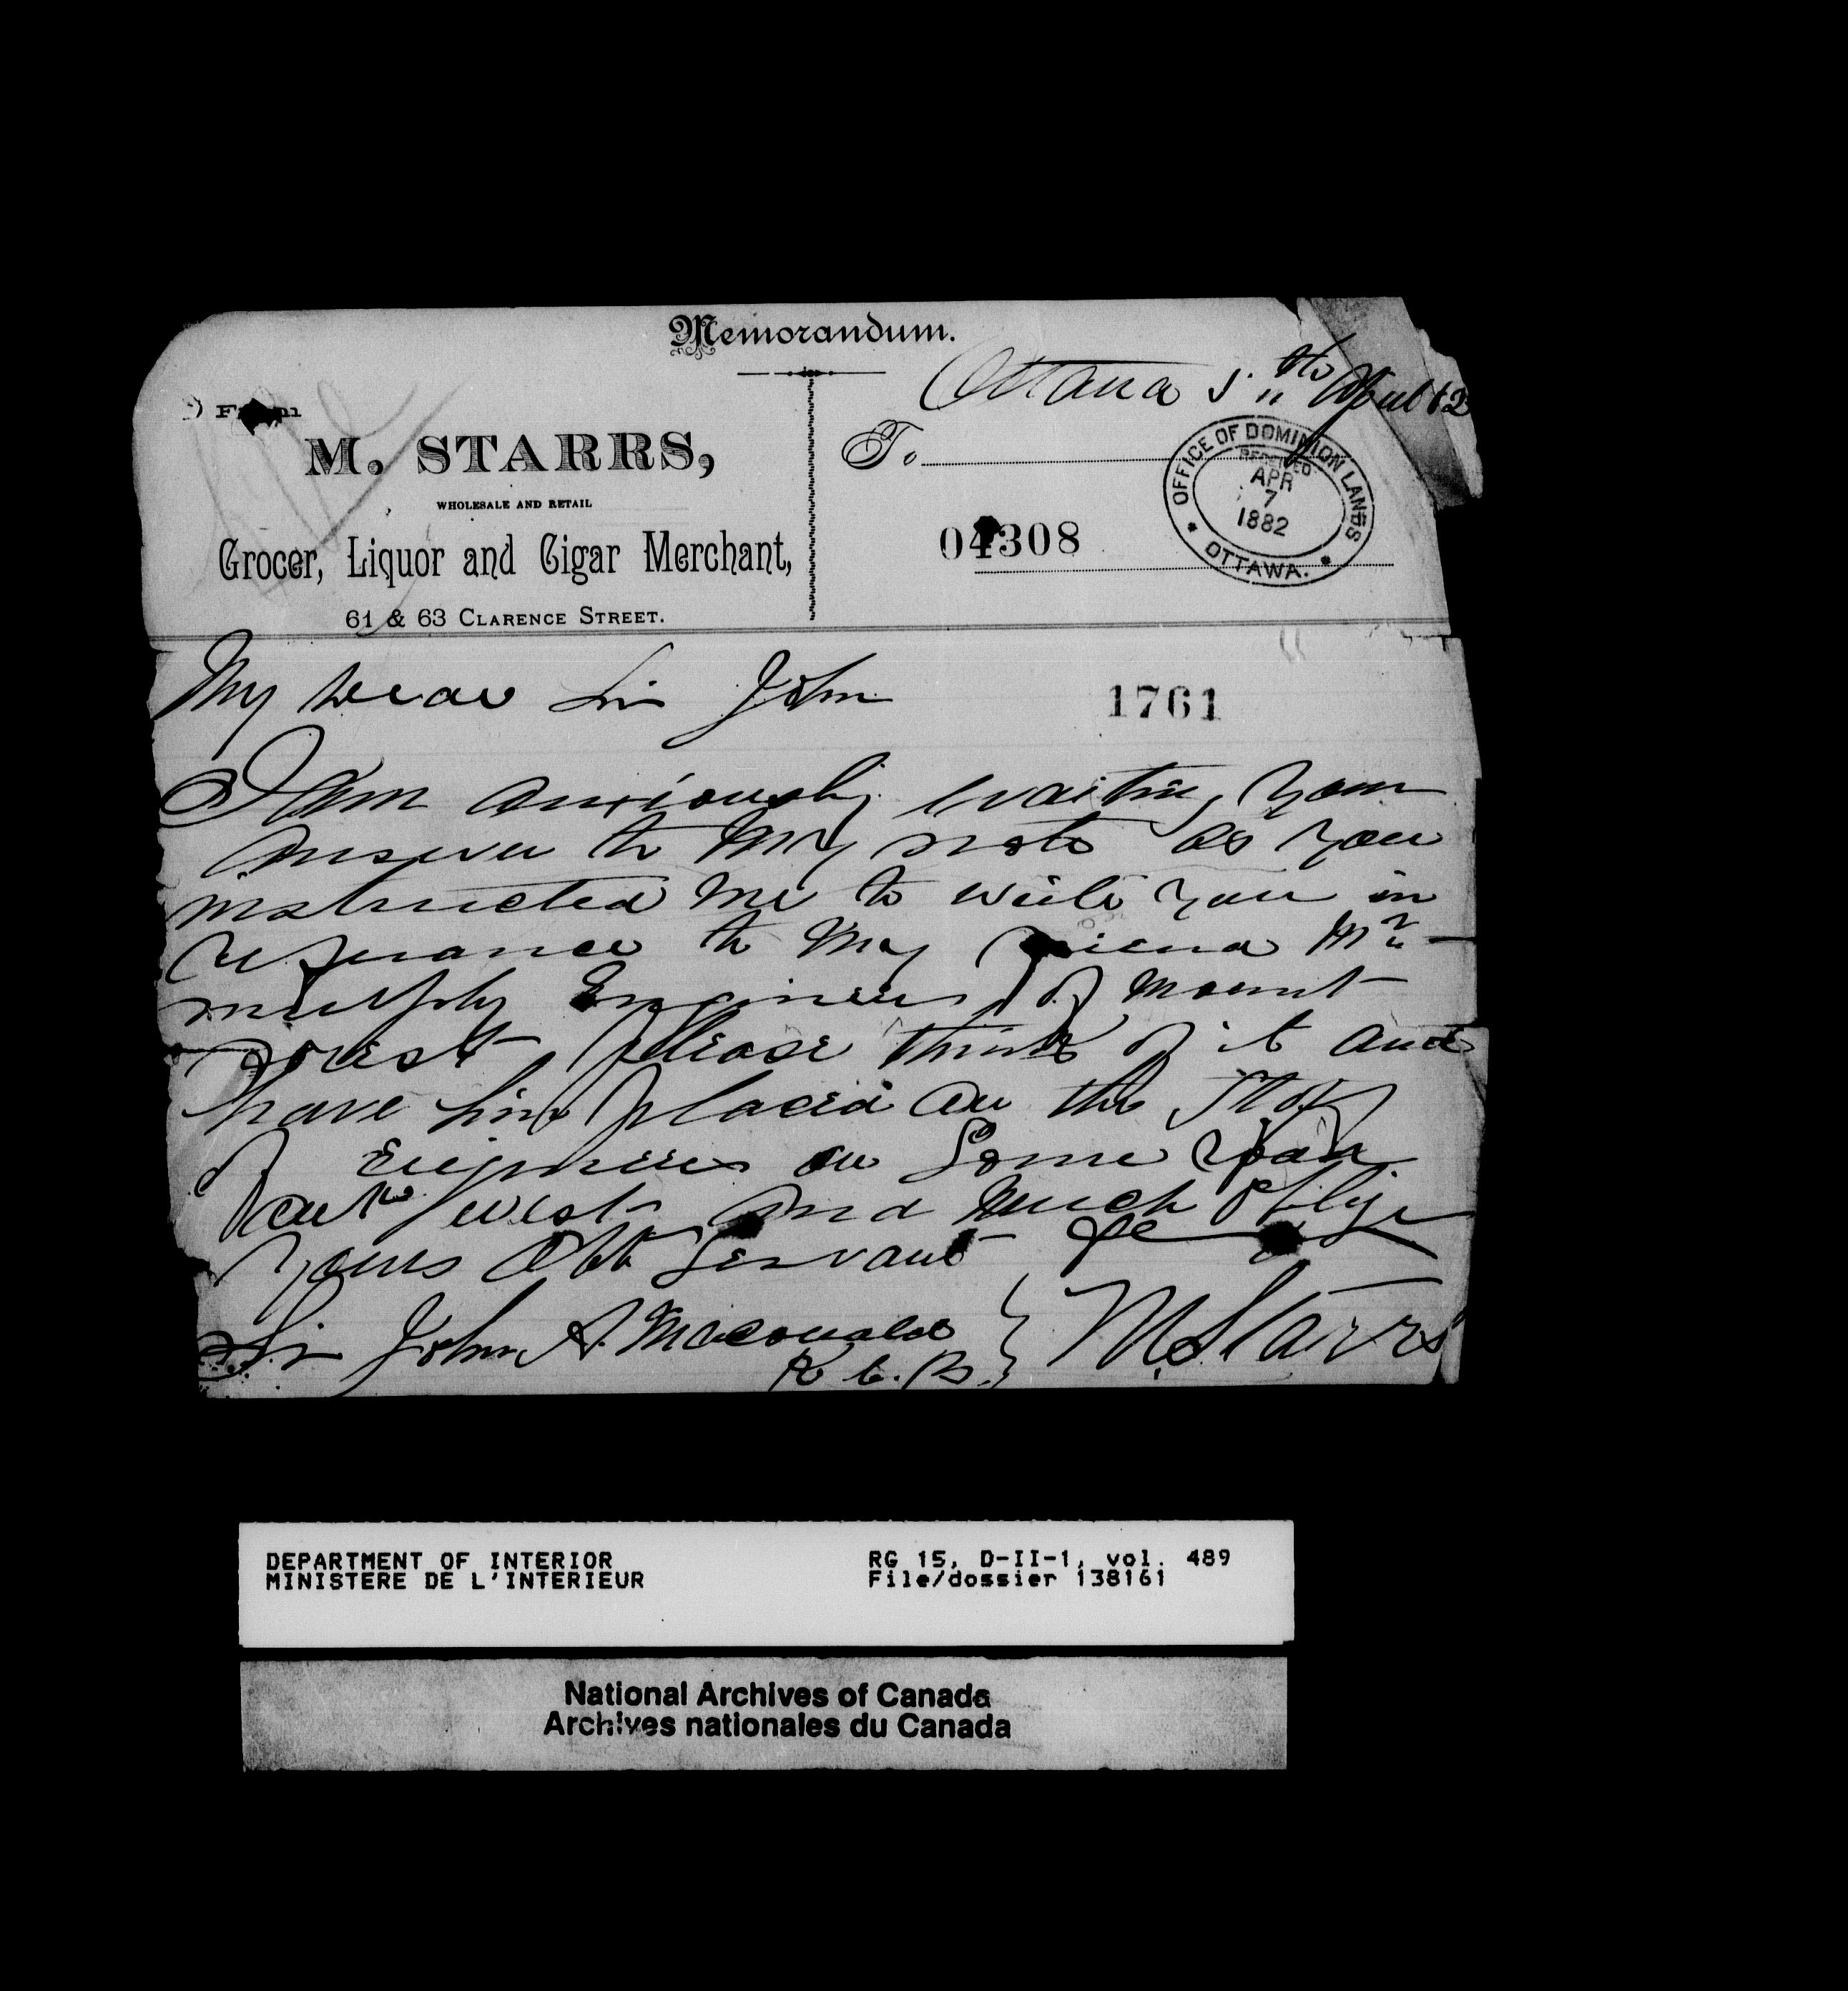 Memorandum.
Ottawa 5th April 82
From
M. STARRS,
WHOLESALE AND RETAIL
Grocer, Liquor and Cigar Merchant,
61 & 63 CLARENCE STREET.
To
OFFICE OF DOMINION LANDS
RECEIVED
APR
7
1882
OTTAWA.
04308
My dear Sir John
1761
I am anxiously waiting your
answer to my note as you
instructed me to write you in
referance to my friend Mr
Murphy Engineer of Mount
Forest please think of it and
have him placed on the Staff
of Engineers on Some
west and much oblige
yours Obt Servant
Sir John A. Macdonald
K. C. B.
M. Starrs
DEPARTMENT OF INTERIOR
MINISTERE DE L'INTERIEUR
RG 15, D-II-1, vol. 489
File/dossier 138161
National Archives of Canada
Archives nationales du Canada